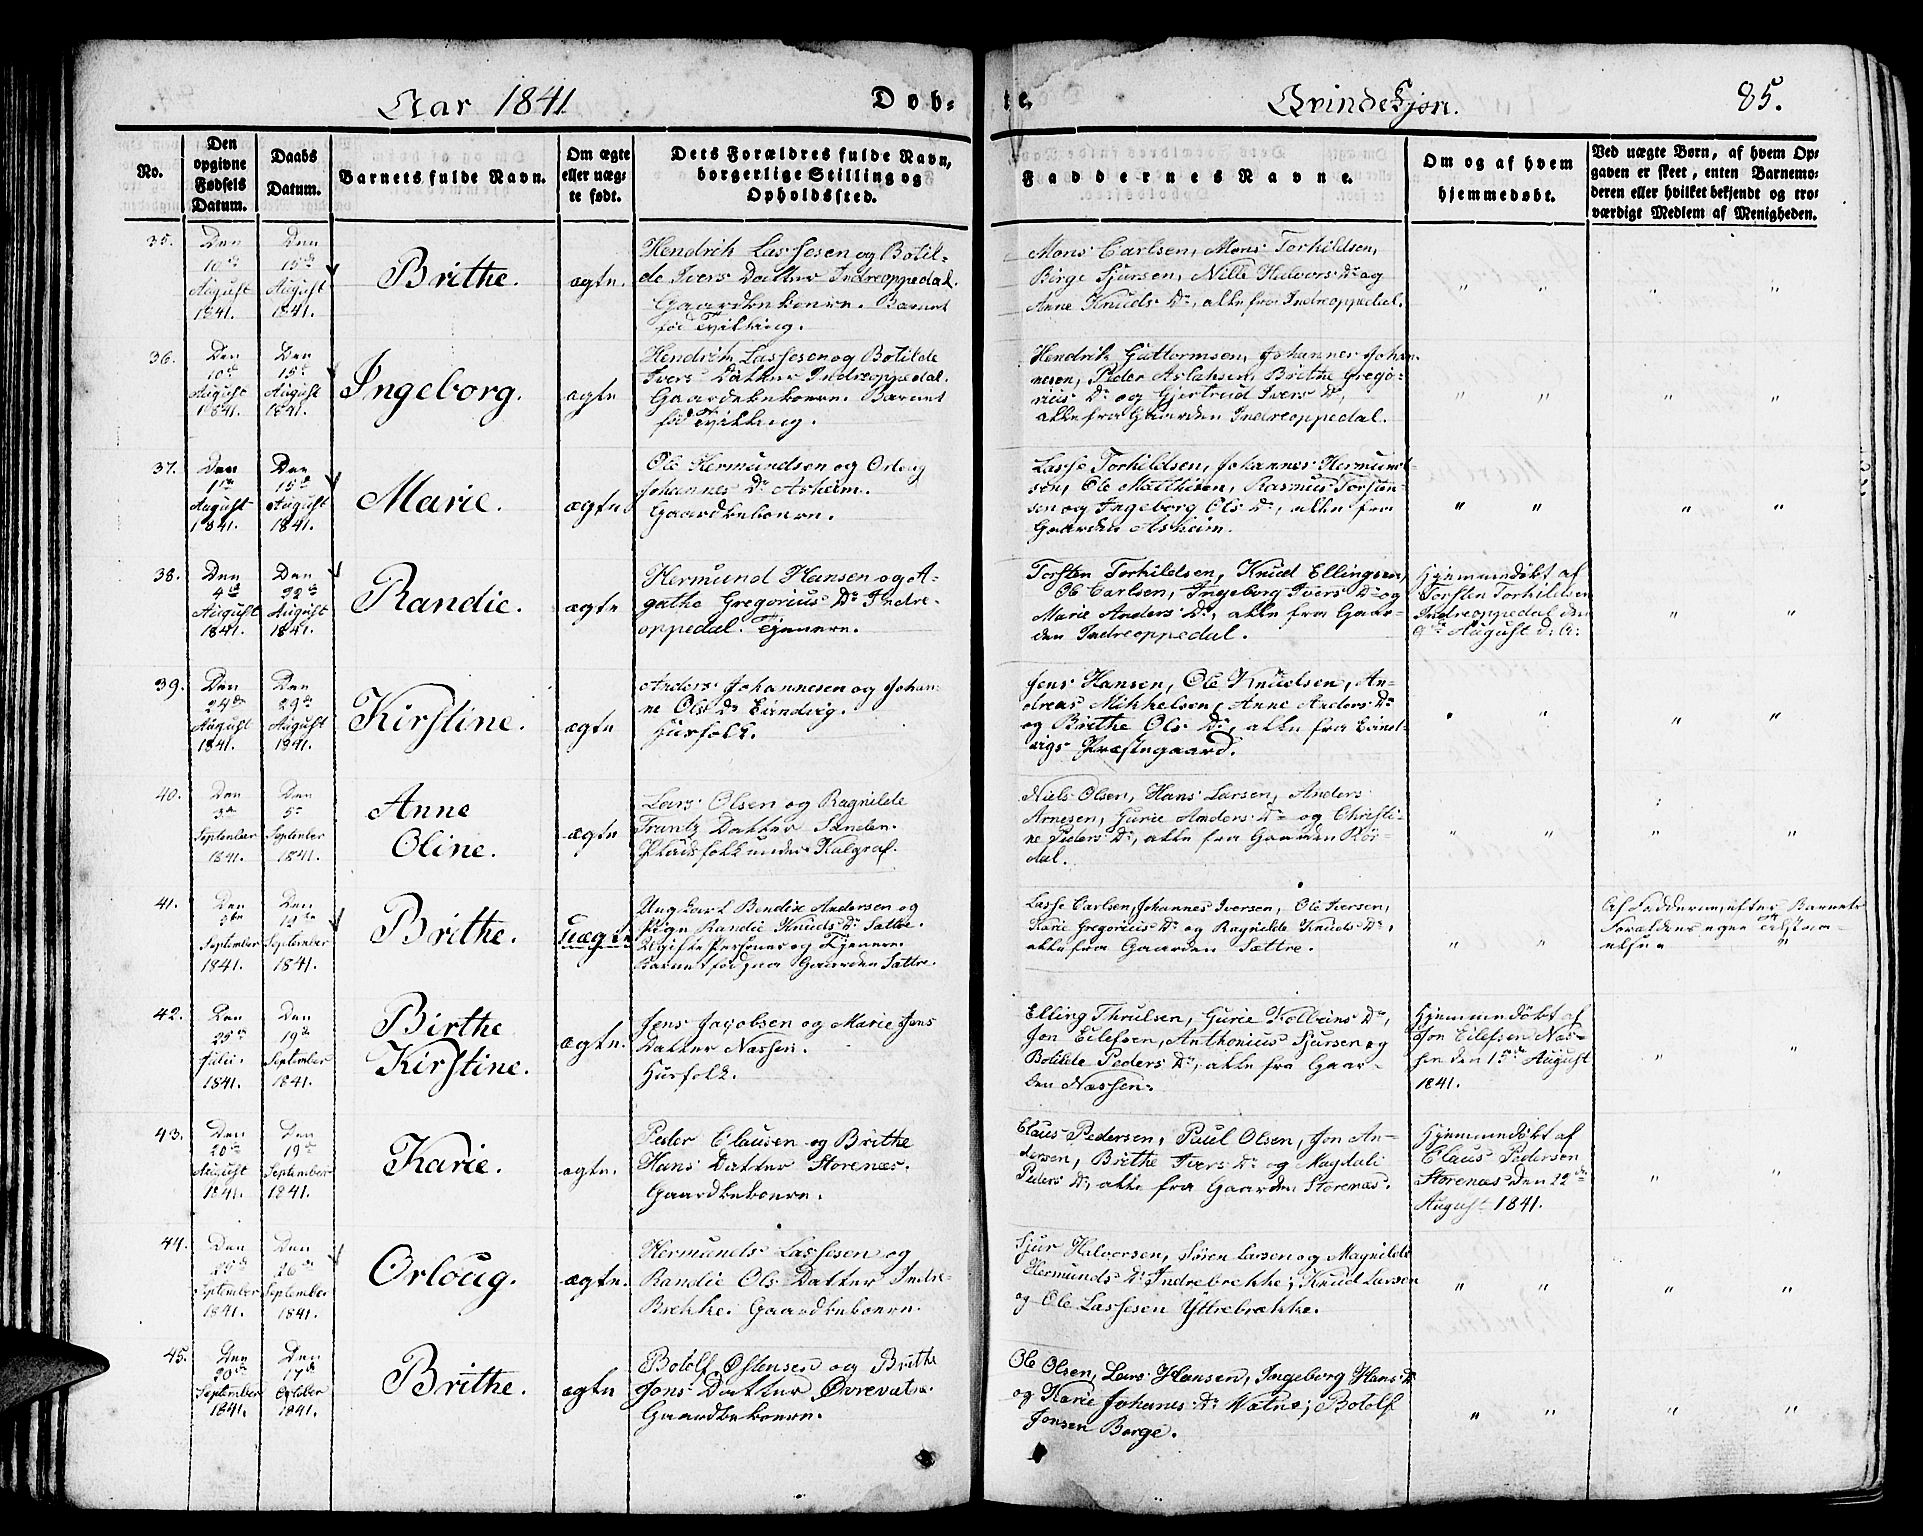 Aar 1841. Døb-
te. Qvindekjøn. 85.
No.
Den
opgivne
Fødsels
Datum.
Daabs
Datum.
Barnets fulde Navn.
Om ægte
eller uæg-
te født.
Dets Forældres fulde Navn,
borgerlige Stilling og
Opholdssted.
Faddernes Navne.
Om og af hvem
hjemmedøbt.
Ved uægte Børn, af hvem Op-
gaven er skeet, enten Barnemo-
deren eller hvilket bekjendt og tro-
værdigt Medlem af Menigheden.
35.
Den
10de
August
1841.
Den
15de
August
1841.
Brithe.
ægte.
Hendrik Lassesen og Botil-
de Ivers Datter Indreoppedal.
Gaardbeboere. Barnet
fød Tvilling.
Mons Carlsen, Mons Torkildsen,
Børge Sjursen, Nille Halvors Dr og
Anne Knuds Dr, alle fra Indreoppedal.
" " " "
36.
Den
10de
August
1841.
Den
15de
August
1841.
Ingeborg.
ægte
Hendrik Lassesen og Botilde
Ivers Datter Indreoppedal.
Gaardbeboere. Barnet
fød Tvilling.
Hendrik Guttormsen, Johannes Johan-
nesen, Peder Aslaksen, Brithe Grego-
rius Dr og Gjertrud Ivers Dr,
alle fra Gaarden Indreoppedal.
" " " "
37.
Den
1ste
August
1841.
Den
15de
August
1841.
Marie.
ægte.
Ole Hermundsen og Orloug
Johannes Dr Asheim.
Gaardbeboere.
Lasse Torkildsen, Johannes Hermund-
sen, Ole Matthisen, Rasmus Torsten-
sen og Ingeborg Ols Dr, alle fra
Gaarden Asheim.
" " " "
38.
Den
4de
August
1841.
Den
22de
August
1841.
Randie.
ægte
Hermund Hansen og A-
gathe Gregorius Dr Indre-
oppedal. Tjenere.
Torsten Torkildsen, Knud Ellingsen,
Ole Carlsen, Ingeborg Ivers Dr og
Marie Anders Dr, alle fra Gaar-
den Indreoppedal.
Hjemmedøbt af
Torsten Torkildsen
Indreoppedal den
9de August d: A:
" "
39.
Den
24de
August
1841.
Den
29de
August
1841.
Kirstine.
ægte
Anders Johannesen og Johan-
ne Ols Dr Eivindvig.
Huusfolk.
Jens Hansen, Ole Knudsen, An-
dreas Mikkelsen, Anne Anders Dr
og Brithe Ols Dr, alle fra Eivind-
vigs Præstegaard.
" " " "
40.
Den
3de
September
1841.
Den
5te
September
1841.
Anne
Oline.
ægte
Lars Olsen og Ragnilde
Frantz Datter Sanden.
Pladsfolk under Kalgraf.
Niels Olsen, Hans Larsen, Anders
Arnesen, Gurie Anders Dr og Christi-
ne Peders Dr, alle fra Gaarden Rør-
dal.
" " " "
41.
Den
September
1841.
Den
12te
September
1841.
Brithe.
Uægte
Ungkarl Bendix Andersen og
Pige Randie Knuds Dr Sættre.
Ugifte Personer og Tjenere.
Barnet fød paa Gaarden Sættre.
Lasse Carlsen, Johannes Iversen, Ole Iversen,
Karie Gregorius Dr og Ragnilde Knuds Dr,
alle fra Gaarden Sættre.
" "
Af Fadderne, efter Barnets
Forældres egen Tilstaa-
else. "
42.
Den
25de
Julii
1841.
Den
19de
September
1841.
Birthe
Kirstine.
ægte.
Jens Jacobsen og Marie Jens
Datter Nassen.
Huusfolk.
Elling Thrulsen, Gurie Kolbeins Dr,
Jon Eilefsen, Anthonius Sjursen og
Botilde Peders Dr, alle fra Gaar-
den Nassen.
Hjemmedøbt af
Jon Eilefsen Nas-
sen den 15de August
1841.
" "
43.
Den
20de
August
1841.
Den
19de
September
1841.
Karie.
ægte.
Peder Clausen og Brithe
Hans Datter Storenæs.
Gaardbeboere.
Claus Pedersen, Poul Olsen, Jon An-
dersen, Brithe Ivers Dr og Magdali
Peders Dr, alle fra Gaarden Storenæs.
Hjemmedøbt af
Claus Pedersen
Storenæs den 22de
August 1841.
" "
44.
Den
September
1841.
Den
26de
September
1841.
Orloug.
ægte.
Hermund Lassesen og
Randie Ols Datter Indre-
Brekke. Gaardbeboere.
Sjur Halvorsen, Søren Larsen og Magnilde
Hermunds Dr Indrebrekke; Knud Larsen
og Ole Lassesen Yttrebrekke.
" " " "
45.
Den
20de
September
1841.
Den
17de
October
1841.
Brithe.
ægte
Botolf Østensen og Brithe
Jons Datter Øvrevatne.
Gaardbeboere.
Ole Olsen, Lars Hansen, Ingeborg Hans Dr
og Karie Johanes Dr Vatne; Botolf
Jonsen Borge.
" " " "